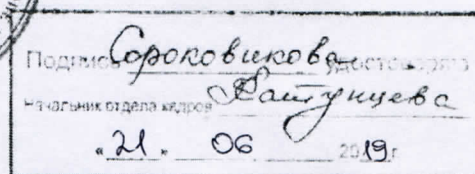 Подпись Сороковикова удостоверяю
Начальник отдела кадров
«21» 06 2019 г